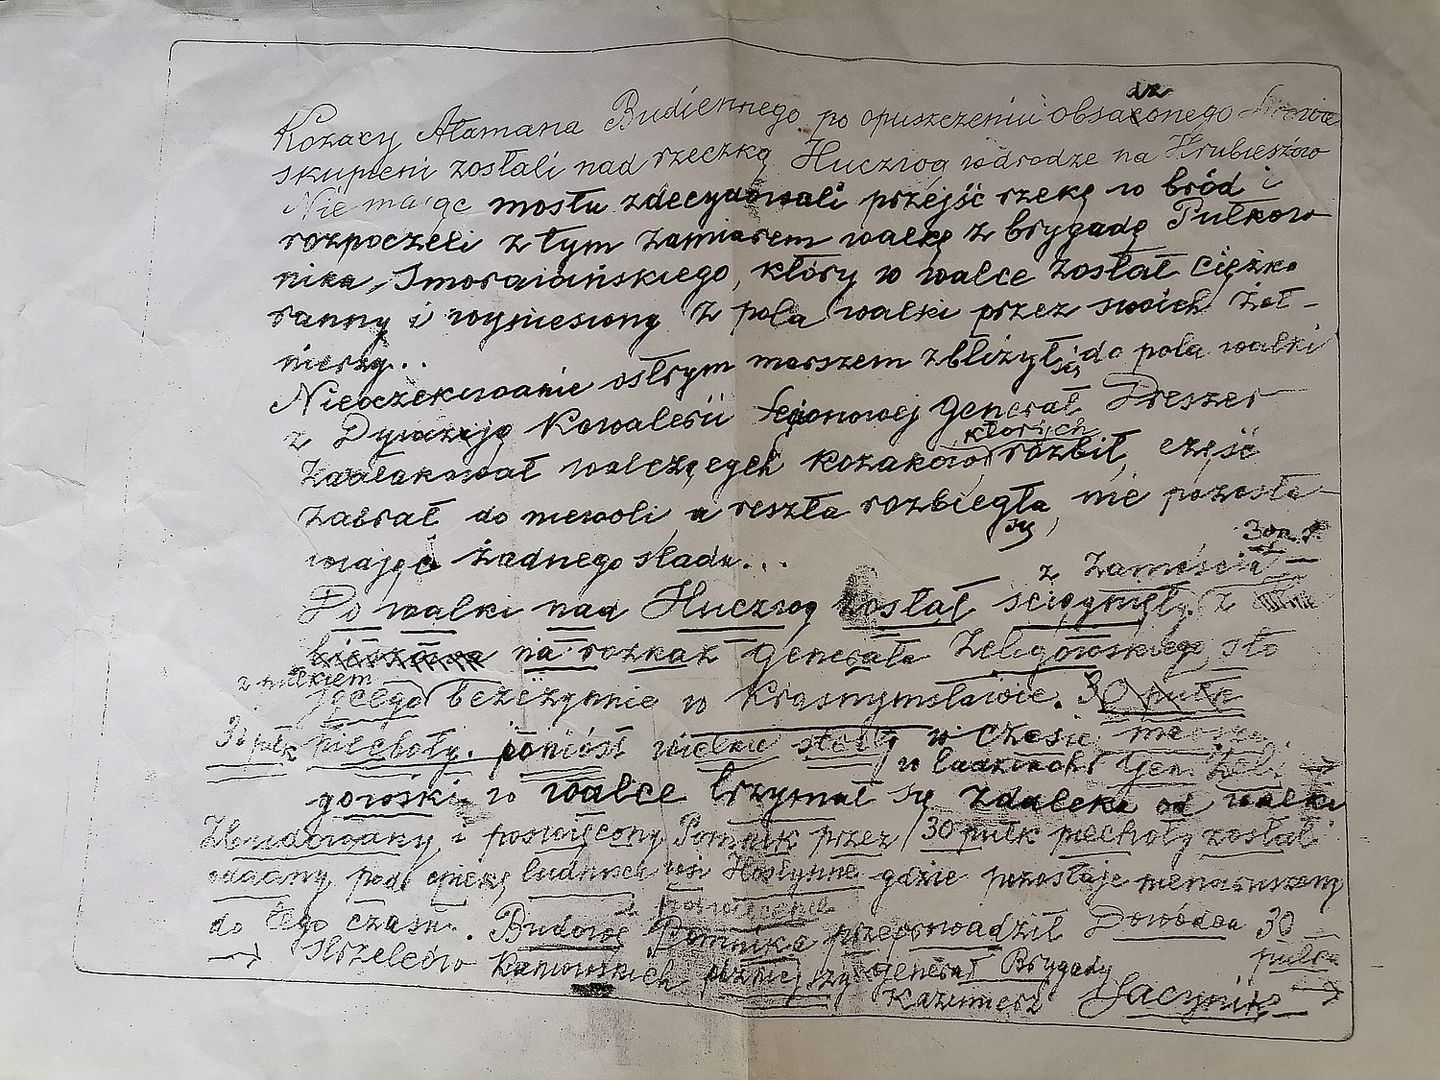 Kozacy Atamana Budiennego po opuszczeniu obsadzonego
skupieni zostali nad rzeczką Huczwą w drodze na Hrubieszów
Nie mając mostu zdecydowali przejść rzekę w bród i
rozpoczeli z tym zamiarem walkę z brygadą Pułkow
nika, Smorawińskiego, który w walce został ciężko
ranny i wyniesiony z pola walki przez swoich żoł-
nierzy..
Nieoczekiwanie ostrym marszem zbliżył się do pola walki
z Dywizją Kawalerii Legionowej Generał Dreszer
których
Zaatakował walczących kozaków rozbił, część
zabrał do niewoli a reszta rozbiegła się, nie pozosta-
wiając żadnego śladu...
z Zamościa -
Po walki nad Huczwą został ściągnięty z
na rozkaz Generała Żeligowskiego sto
z pułkiem
jącego bezczynnie w Krasnymstawie. 30 pułk
30 pułk piechoty. poniósł wielkie straty w czasie
w ludziach Gen. Żeli
gowski w walce trzymał się zdaleka od walki
Zbudowany i poświęcony Pomnik przez 30 pułk piechoty został
oddany pod opiekę ludności wsi Hostynne gdzie pozostaje nienaruszony
i poświęcenie
do tego czasu. Budowę Pomnika przeprowadził Dowódca 30
pułku
Strzelców Kaniowskich późniejszy generał Brygady
Kazimierz